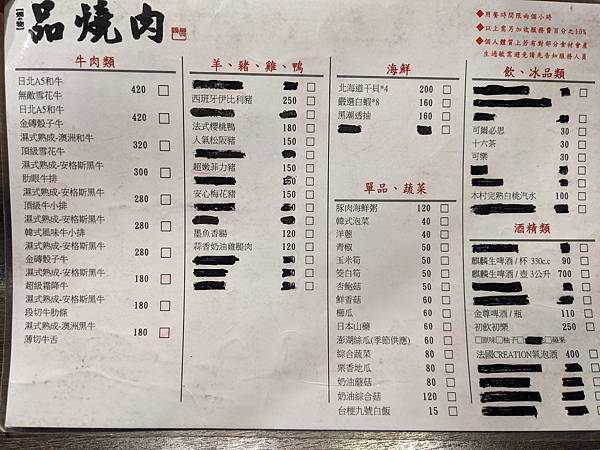 品燒肉
◆用餐時間限兩個小時
◆以上需另加收服務費百分之10%
◆個人體質上若有對部分食材會產
生過敏需避免請先告知服務人員
牛肉類
日北A5和牛
無敵雪花牛 420 □
日北A5和牛
金磚骰子牛 420 □
濕式熟成-澳洲和牛
頂級雪花牛 380 □
濕式熟成-安格斯黑牛
肋眼牛排 300 □
濕式熟成-安格斯黑牛
頂級牛小排 280 □
濕式熟成-安格斯黑牛
韓式風味牛小排 280 □
濕式熟成-安格斯黑牛
金磚骰子牛 280 □
濕式熟成-安格斯黑牛
超級霜降牛 240 □
濕式熟成-安格斯黑牛
段切牛肋條 180 □
濕式熟成-澳洲黑牛
薄切牛舌 180 □
羊、豬、雞、鴨
西班牙伊比利豬 250 □
法式櫻桃鴨 180 □
人氣松阪豬 150 □
超嫩菲力豬 150 □
安心梅花豬 150 □
墨魚香腸 120 □
蒜香奶油雞腿肉 120 □
海鮮
北海道干貝*4 200 □
嚴選白蝦*8 160 □
黑潮透抽 160 □
單品、蔬菜
豚肉海鮮粥 120 □
韓式泡菜 40 □
洋蔥 40 □
青椒 50 □
玉米筍 50 □
筊白筍 50 □
杏鮑菇 50 □
鮮香菇 60 □
櫛瓜 60 □
日本山藥 60 □
澎湖絲瓜(季節供應) 60 □
綜合蔬菜 80 □
栗香地瓜 80 □
奶油蘑菇 80 □
奶油綜合菇 120 □
台梗九號白飯 15 □
飲、冰品類
可爾必思 30 □
十六茶 30 □
可樂 30 □
木村完熟白桃汽水 100 □
酒精類
麒麟生啤酒/杯 330c.c 90 □
麒麟生啤酒/壺 3公升 700 □
金尊啤酒/瓶 110 □
初飲初樂 250 □
□原味□柚子 □蘋果
法國CREATION氣泡酒 400 □